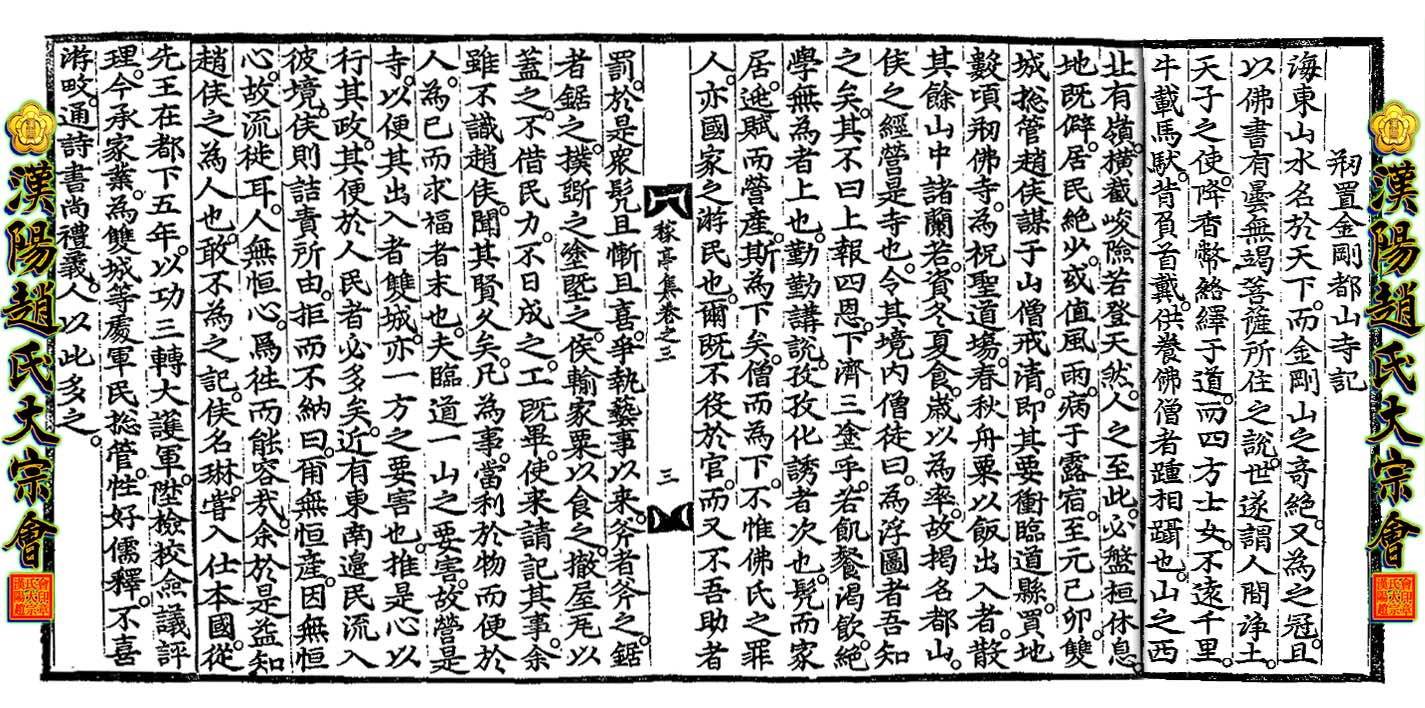 漢陽趙氏大宗會
刱置金剛都山寺記
海東山水名於天下。而金剛山之奇絶。又為之冠。且
以佛書有曇無竭菩薩所住之說。世遂謂人間浄土。
天子之使。降香幣絡繹于道。而四方士女。不遠千里。
牛載馬䭾。背負首戴。供養佛僧者踵相躡也。山之西
北有嶺。橫截峻險若登天然。人之至此。必盤桓休息。
地旣僻。居民絶少。或值風雨。病于露宿。至元己卯。雙
城摠管趙侯謀于山僧戒淸。即其要衝臨道縣。買地
數頃刱佛寺。為祝聖道場。春秋舟粟以飯出入者。散
其餘山中諸蘭若。資冬夏食。歲以為率。故揭名都山。
侯之經營是寺也。令其境內僧徒曰。為浮圖者吾知
之矣。其不曰上報四恩。下濟三塗乎。若飢餐渴飮。絶
學無為者上也。勤勤講說。孜孜化誘者次也。髡而家
居。逃賦而營產。斯為下矣。僧而為下。不惟佛氏之罪
人。亦國家之游民也。爾旣不役於官。而又不吾助者
稼亭集卷之三
三
罰。於是衆髡且慚且喜。爭執藝事以来。斧者斧之。鋸
者鋸之。撲斲之。塗墍之。侯輸家粟以食之。撤屋瓦以
蓋之。不借民力。不日成之。工旣畢。使来請記其事。余
雖不識趙侯。聞其賢久矣。凡為事。當利於物而便於
人。為己而求福者末也。夫臨道一山之要害。故營是
寺。以便其出入者。雙城。亦一方之要害也。推是心以
行其政。其便於人民者必多矣。近有東南邊民流入
彼境。侯則詰責所由。拒而不納曰。甭無恒產。因無恒
心。故流徙耳。人無恒心。焉徃而能容㢤。余於是益知
趙侯之為人也。敢不為之記。侯名琳。甞入仕本國。從
先王在都下五年。以功三轉大護軍。陞檢校僉議評
理。今承家業。為雙城等處軍民摠管。性好儒釋。不喜
游畋。通詩書尙禮義。人以此多之。
漢陽趙氏大宗會